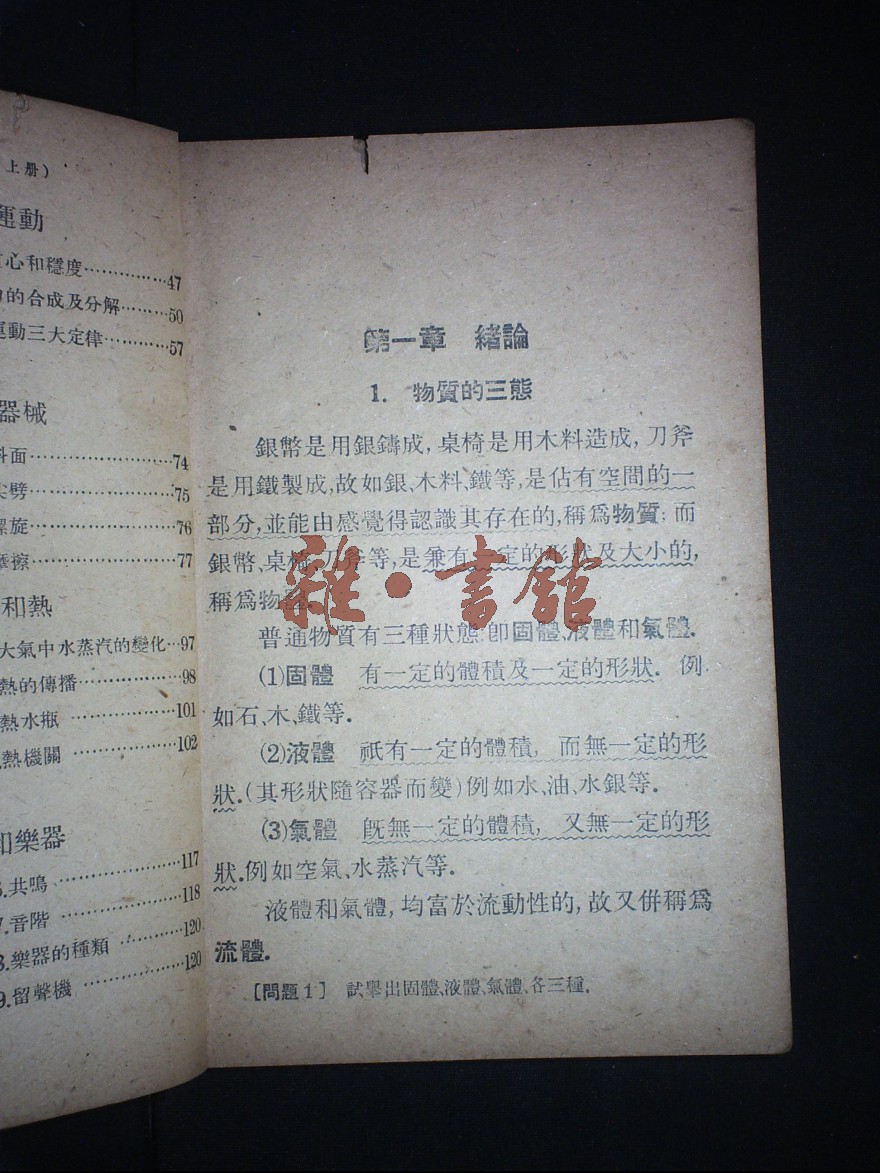 上册)
運動
心和穩度……………47
的合成及分解………50
運動三大定律…………57
器械
斜面………………74
尖劈………………75
螺旋………………76
摩擦………………77
和熱
大氣中水蒸汽的變化…97
熱的傳播……………98
熱水瓶……………101
熱機關……………102
和樂器
共鳴………………117
7.音階………………118
8.樂器的種類…………120
9.留聲機……………120
第一章 緒論
1. 物質的三態
銀幣是用銀鑄成,桌椅是用木料造成,刀斧
是用鐵製成,故如銀、木料、鐵等,是佔有空間的一
部分,並能由感覺得認識其存在的,稱爲物質;而
銀幣、桌椅、刀斧等,是兼有一定的形狀及大小的,
稱爲物體.
普通物質有三種狀態:卽固體、液體和氣體.
(1)固體 有一定的體積及一定的形狀. 例
如石、木、鐵等.
(2)液體 祇有一定的體積, 而無一定的形
狀.(其形狀隨容器而變)例如水、油、水銀等.
(3)氣體 旣無一定的體積, 又無一定的形
狀.例如空氣、水蒸汽等.
液體和氣體,均富於流動性的,故又併稱爲
流體.
[問題1] 試舉出固體、液體、氣體、各三種.
雜·書館